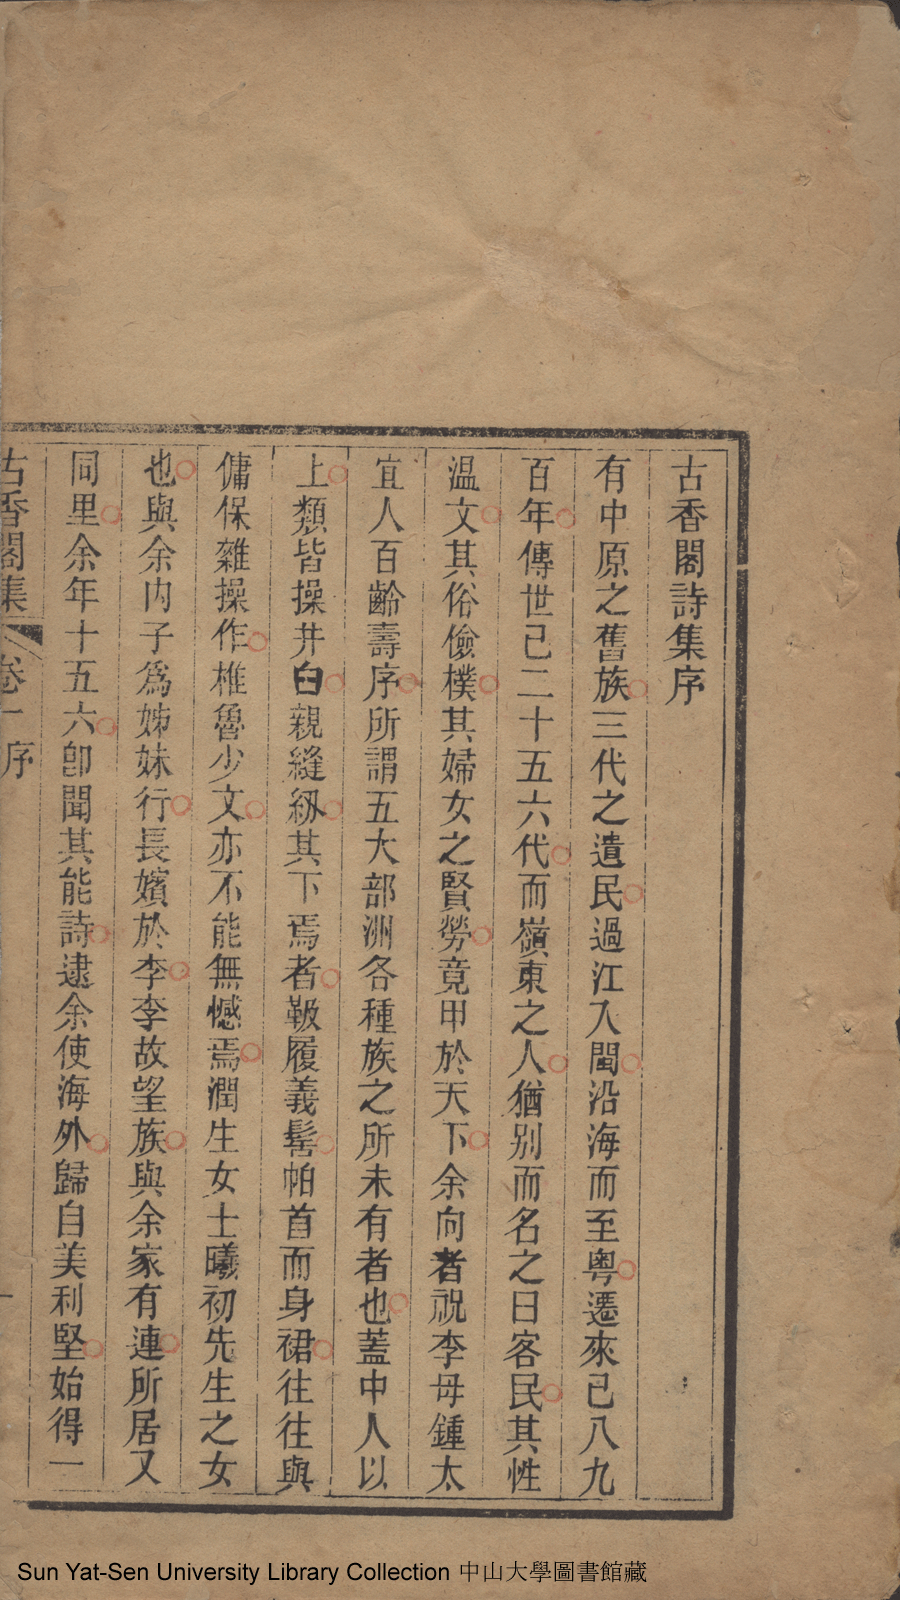 古香閣詩集序
有中原之舊族三代之遺民過江入閩沿海而至粵遷來已八九
百年傳世已二十五六代而嶺東之人猶別而名之曰客民其性
温文其俗儉樸其婦女之賢勞竟甲於天下余向者祝李母鍾太
宜人百齡壽序所謂五大部洲各種族之所未有者也蓋中人以
上類皆操井臼親縫紉其下焉者靸履義髻帕首而身裙往往與
傭保雜操作椎魯少文亦不能無憾焉潤生女士曦初先生之女
也與余内子爲姊妹行長嬪於李李故望族與余家有連所居又
同里余年十五六卽聞其能詩逮余使海外歸自美利堅始得一
古香閣集 卷一 序 一
Sun Yat-Sen University Library Collection 中山大學圖書館藏